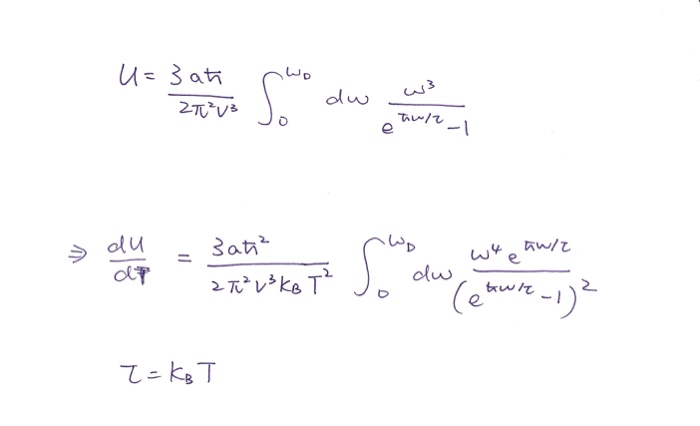 U = 3aħ / 2π²v³ ∫₀^ω_D dω ω³ / e^{ħω/τ} - 1
⇒ dU/dT = 3aħ² / 2π²v³k_B T² ∫₀^ω_D dω ω⁴ e^{ħω/τ} / (e^{ħω/τ} - 1)²
τ = k_B T